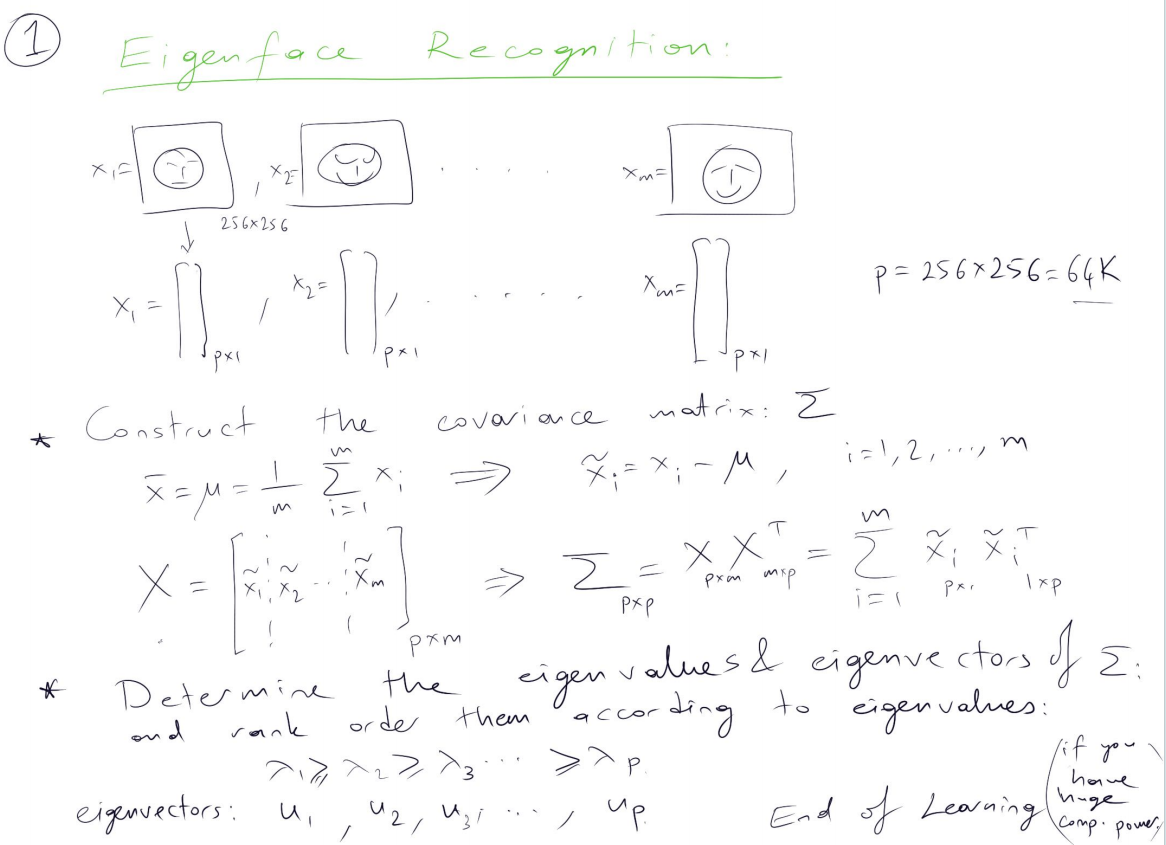 ① Eigenface Recognition:
x₁= , x₂= . . . . . xₘ=
256×256
x₁ = [ ]ₚₓ₁ , x₂= [ ]ₚₓ₁ , . . . . . . xₘ= [ ]ₚₓ₁ p = 256×256 = 64K
* Construct the covariance matrix: Σ
x̄ = μ = 1/m Σᵢ₌₁ᵐ xᵢ ⇒ x̃ᵢ = xᵢ - μ , i=1,2,...,m
X = [x̃₁ x̃₂ ... x̃ₘ]ₚₓₘ ⇒ Σₚₓₚ = Xₚₓₘ Xᵀₘₓₚ = Σᵢ₌₁ᵐ x̃ᵢ ₚₓ₁ x̃ᵢᵀ ₁ₓₚ
* Determine the eigenvalues & eigenvectors of Σ:
and rank order them according to eigenvalues:
λ₁ ≥ λ₂ ≥ λ₃ ... ≥ λₚ.
eigenvectors: u₁, u₂, u₃, ..., uₚ. End of Learning (if you
have
huge
comp. power)